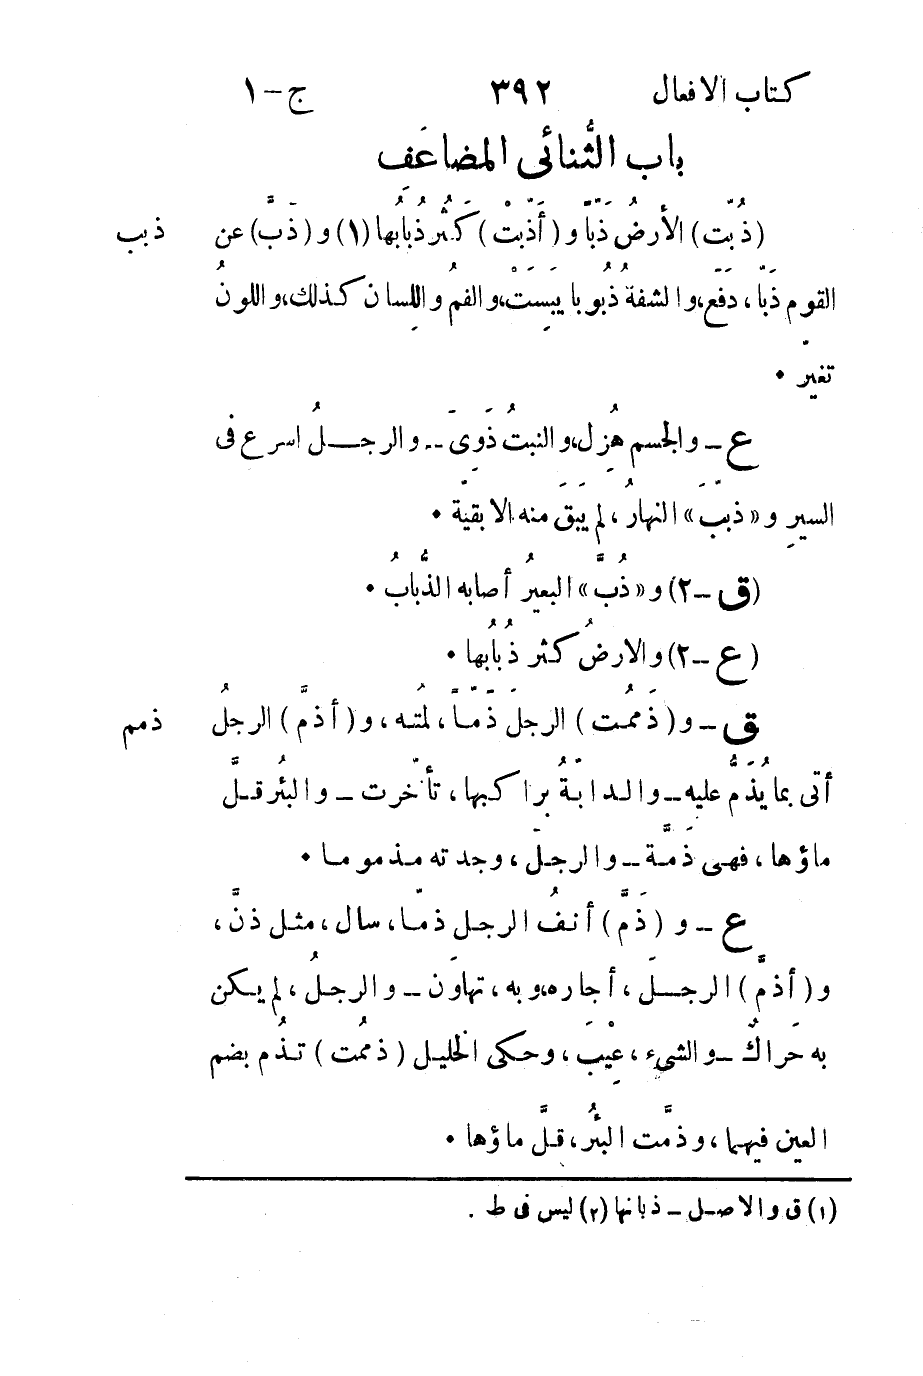 كتاب الافعال ٣٩٢ ج-١
باب الثُّنائى المضاعَف
(ذُبّت) الأرضُ ذَبّاً و(أَذَبّتْ) كَثُر ذُبَابُها (١) و(ذَبَّ) عن ذبب
القومِ ذَبّا، دَفَع، والشفةُ ذُبُوبا يَبِسَتْ، والفمُ واللسان كذلك، واللونُ
تغيّر •
ع ـ والجسمُ هُزِل، والنبتُ ذَوَى ـ والرجلُ اسرع فى
السيرِ و«ذَبّبَ» النهارُ، لم يَبقَ منه الا بقيّة •
(ق ـ٢) و«ذُبَّ» البعيرُ أصابه الذُّبابُ •
(ع ـ٢) والارضُ كثر ذُبابُها •
ق ـ و(ذَممت) الرجُلَ ذمّاً، لمُته، و(أذمَّ) الرجلُ ذمم
أتى بما يُذَمُّ عليه ـ والدابّةُ براكبها، تأخّرت ـ والبئرُ قلَّ
ماؤها، فهى ذَمّة ـ والرجلَ، وجدته مذموما •
ع ـ و (ذَمَّ) أنفُ الرجل ذمّا، سال، مثل ذنَّ،
و(أذمَّ) الرجلَ، أجاره، وبه، تهاوَن ـ والرجلُ، لم يكن
به حَراكٌ ـ والشيء، عِيْبَ، وحكى الخليل (ذممُت) تذُم بضم
العين فيهما، وذمّت البئُر، قلَّ ماؤها •
(١) ق والاصل ـ ذبانها (٢) ليس فى ط .